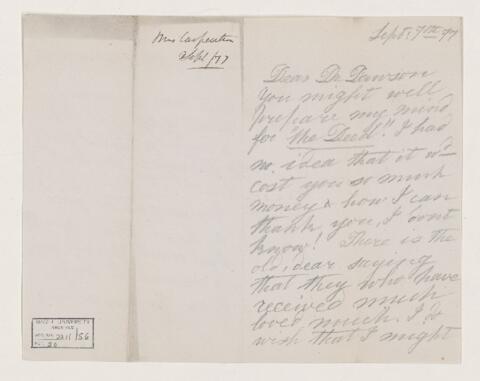 Mrs Carpenter
Sept /77
Sept, 7th 77
Dear Dr. Dawson
You might well
prepare my mind
for "the Deed". I had
no idea that it wd
cost you so much
money & how I can
thank you, I dont
know! There is the
old, dear saying
that they who have
received much
loved much. I do
wish that I might
McGILL UNIVERSITY
ARCHIVES
2211/56